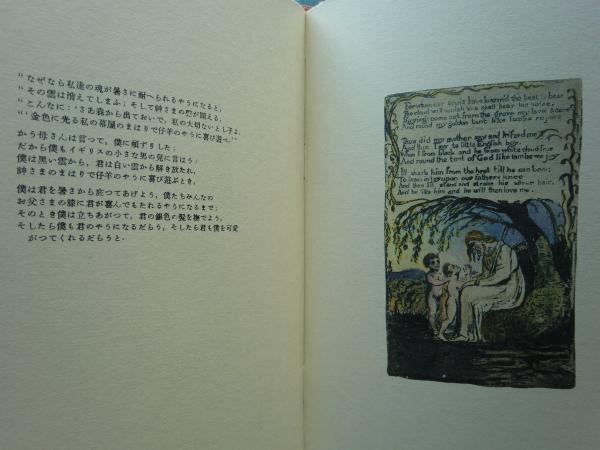 “なぜなら私達の魂が暑さに耐へられるやうになると、
“その雲は消えてしまふ；そして神さまの声が聞える、
“こんなに：‘さあ森から出ておいで、私の大切ないとし子よ、
“‘金色に光る私の幕屋のまはりで仔羊のやうに喜び遊べ’”
かう母さんは言つて、僕に頬ずりした；
だから僕もイギリスの小さな男の児に言はう：
僕は黒い雲から、君は白い雲から解き放たれ、
神さまのまはりで仔羊のやうに喜び遊ぶとき、
僕は君を暑さから庇つてあげよう、僕たちみんなの
お父さまの膝に君が喜んでもたれるやうになるまで；
そのとき僕は立ちあがつて、君の銀色の髪を撫でよう、
そしたら僕も君のやうになるだらう、そしたら君も僕を可愛
がつてくれるだらうと。
For when our souls have learn'd the heat to bear
The cloud will vanish we shall hear his voice,
Saying: come out from the grove my love & care,
And round my golden tent like lambs rejoice
Thus did my mother say and kissed me,
And thus I say to little English boy.
When I from black and he from white cloud free
And round the tent of God like lambs we joy
Ill shade him from the heat till he can bear,
To lean in joy upon our fathers knee
And then I'll stand and stroke his silver hair,
And be like him and he will then love me.